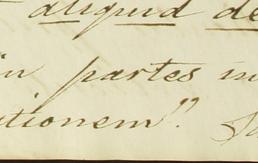 aliquid de
in partes in
tionem".